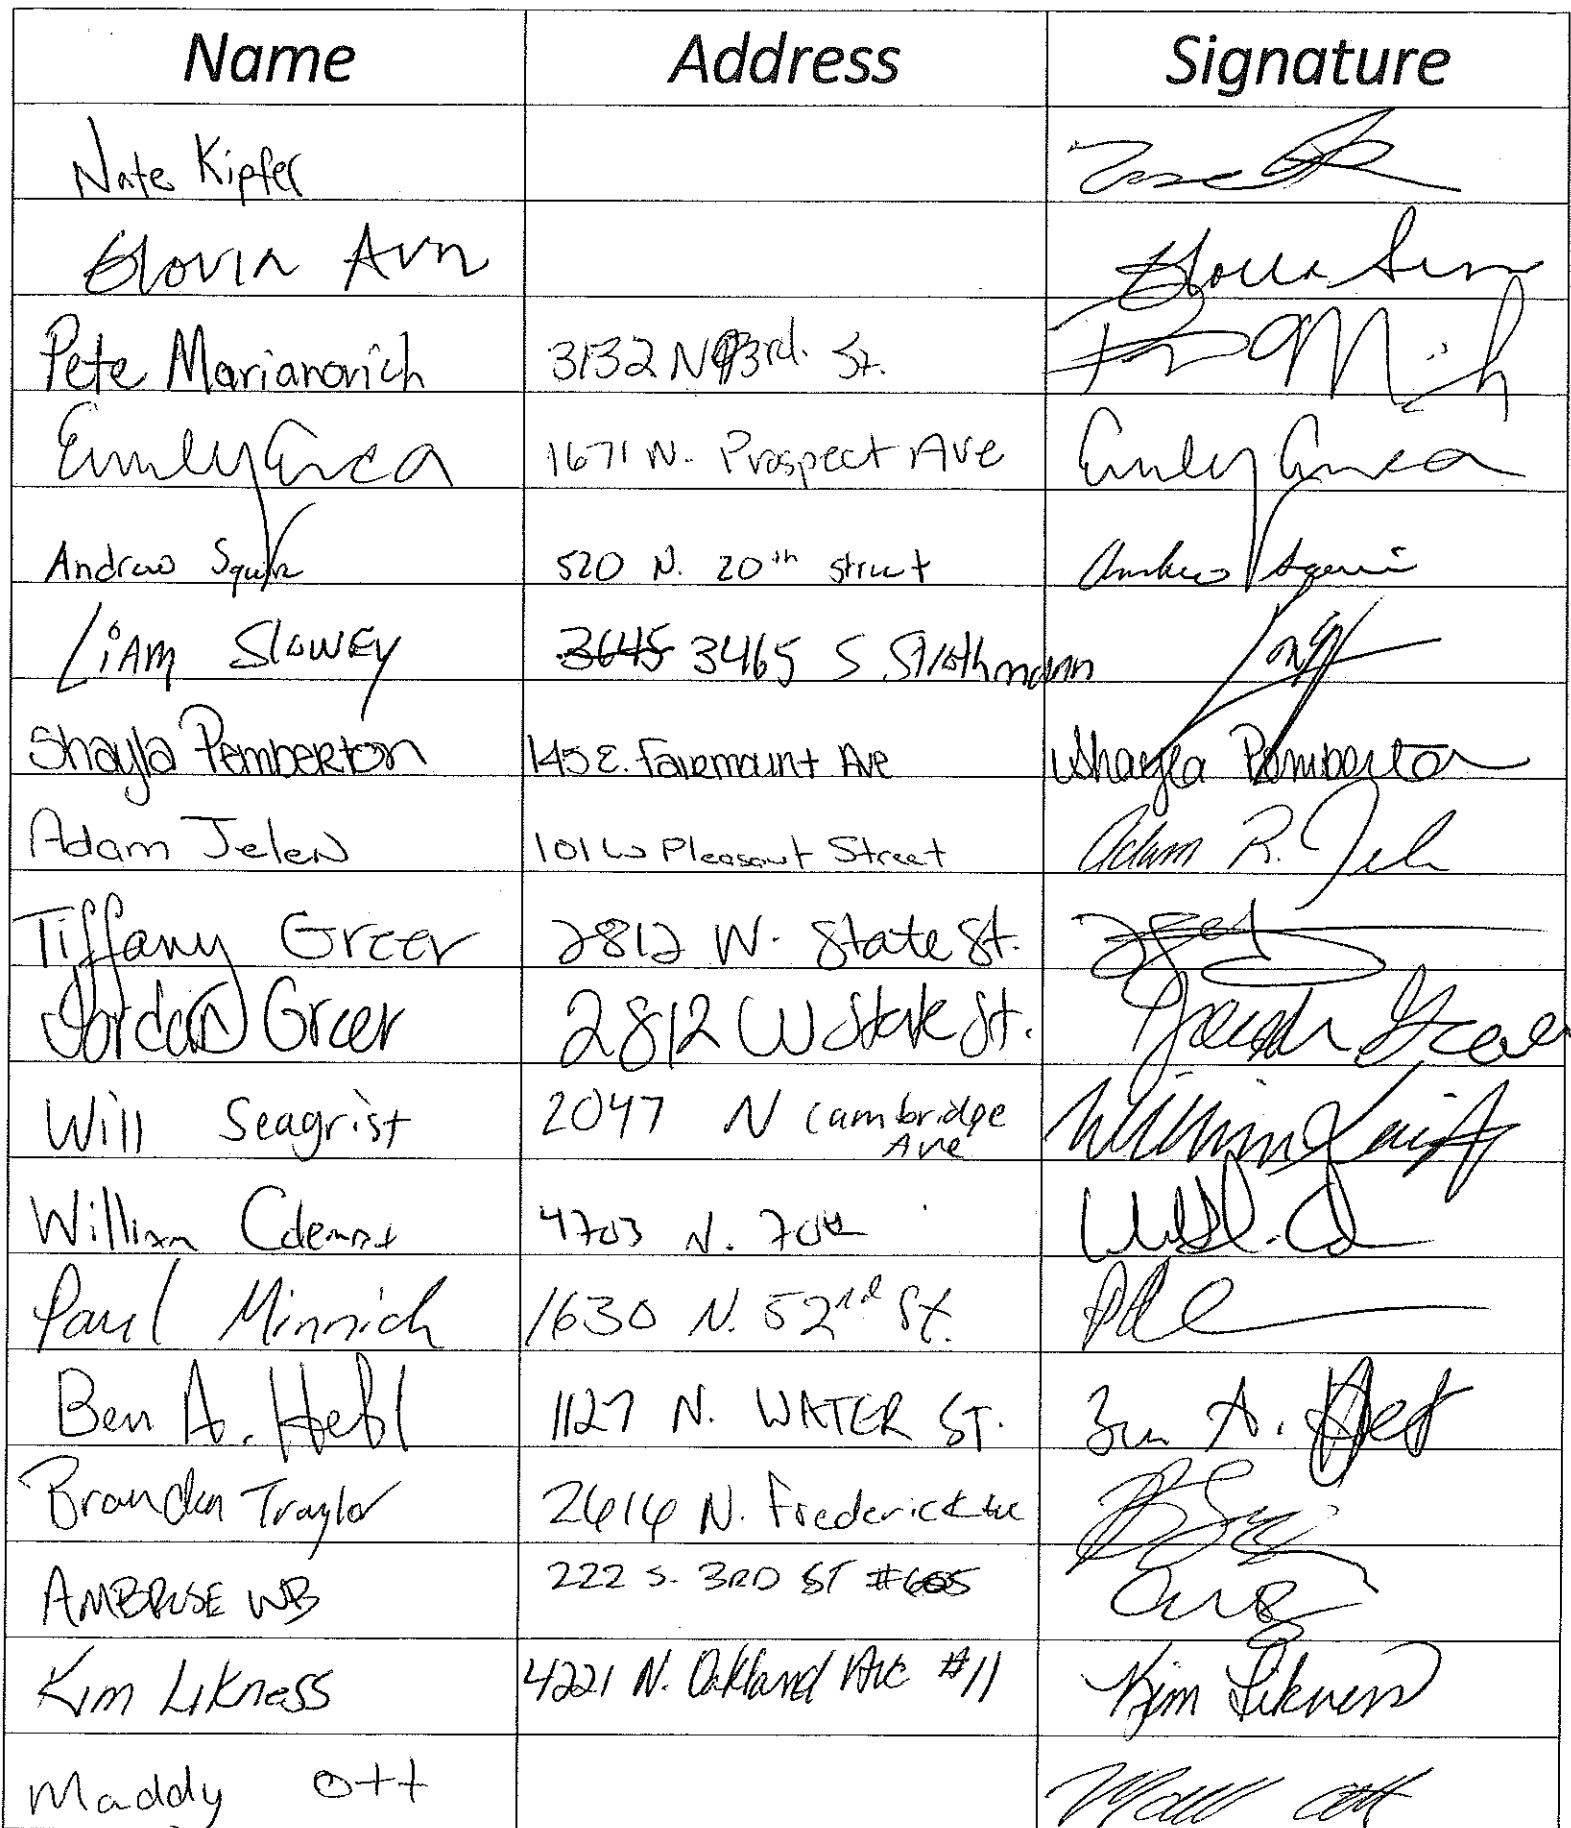 Name Address Signature
Nate Kipfer
Gloria Ann Gloria Ann
Pete Marianovich 3132 N 93rd. St.
Emily 1671 N. Prospect Ave Emily
Andrew Squire 520 N. 20th street Andrew Squire
Liam Slowey 3645 3465 S. Strothmann
Shayla Pemberton 145 E. Fairemount Ave Shayla Pemberton
Adam Jelen 101 W Pleasant Street Adam R. Jelen
Tiffany Greer 2812 W. State St.
Jordan Greer 2812 W State St. Greer
Will Seagrist 2047 N Cambridge
Ave William
William 4703 N. 70th
Paul Minnich 1630 N. 52nd St.
Ben A. Hebl 1127 N. WATER ST. Ben A.
Brandon Traylor N. Frederick Ave
AMBROSE WB 222 S. 3RD ST #605
Kim Likness 4221 N. Oakland Ave #11 Kim Likness
Maddy Ott Ott